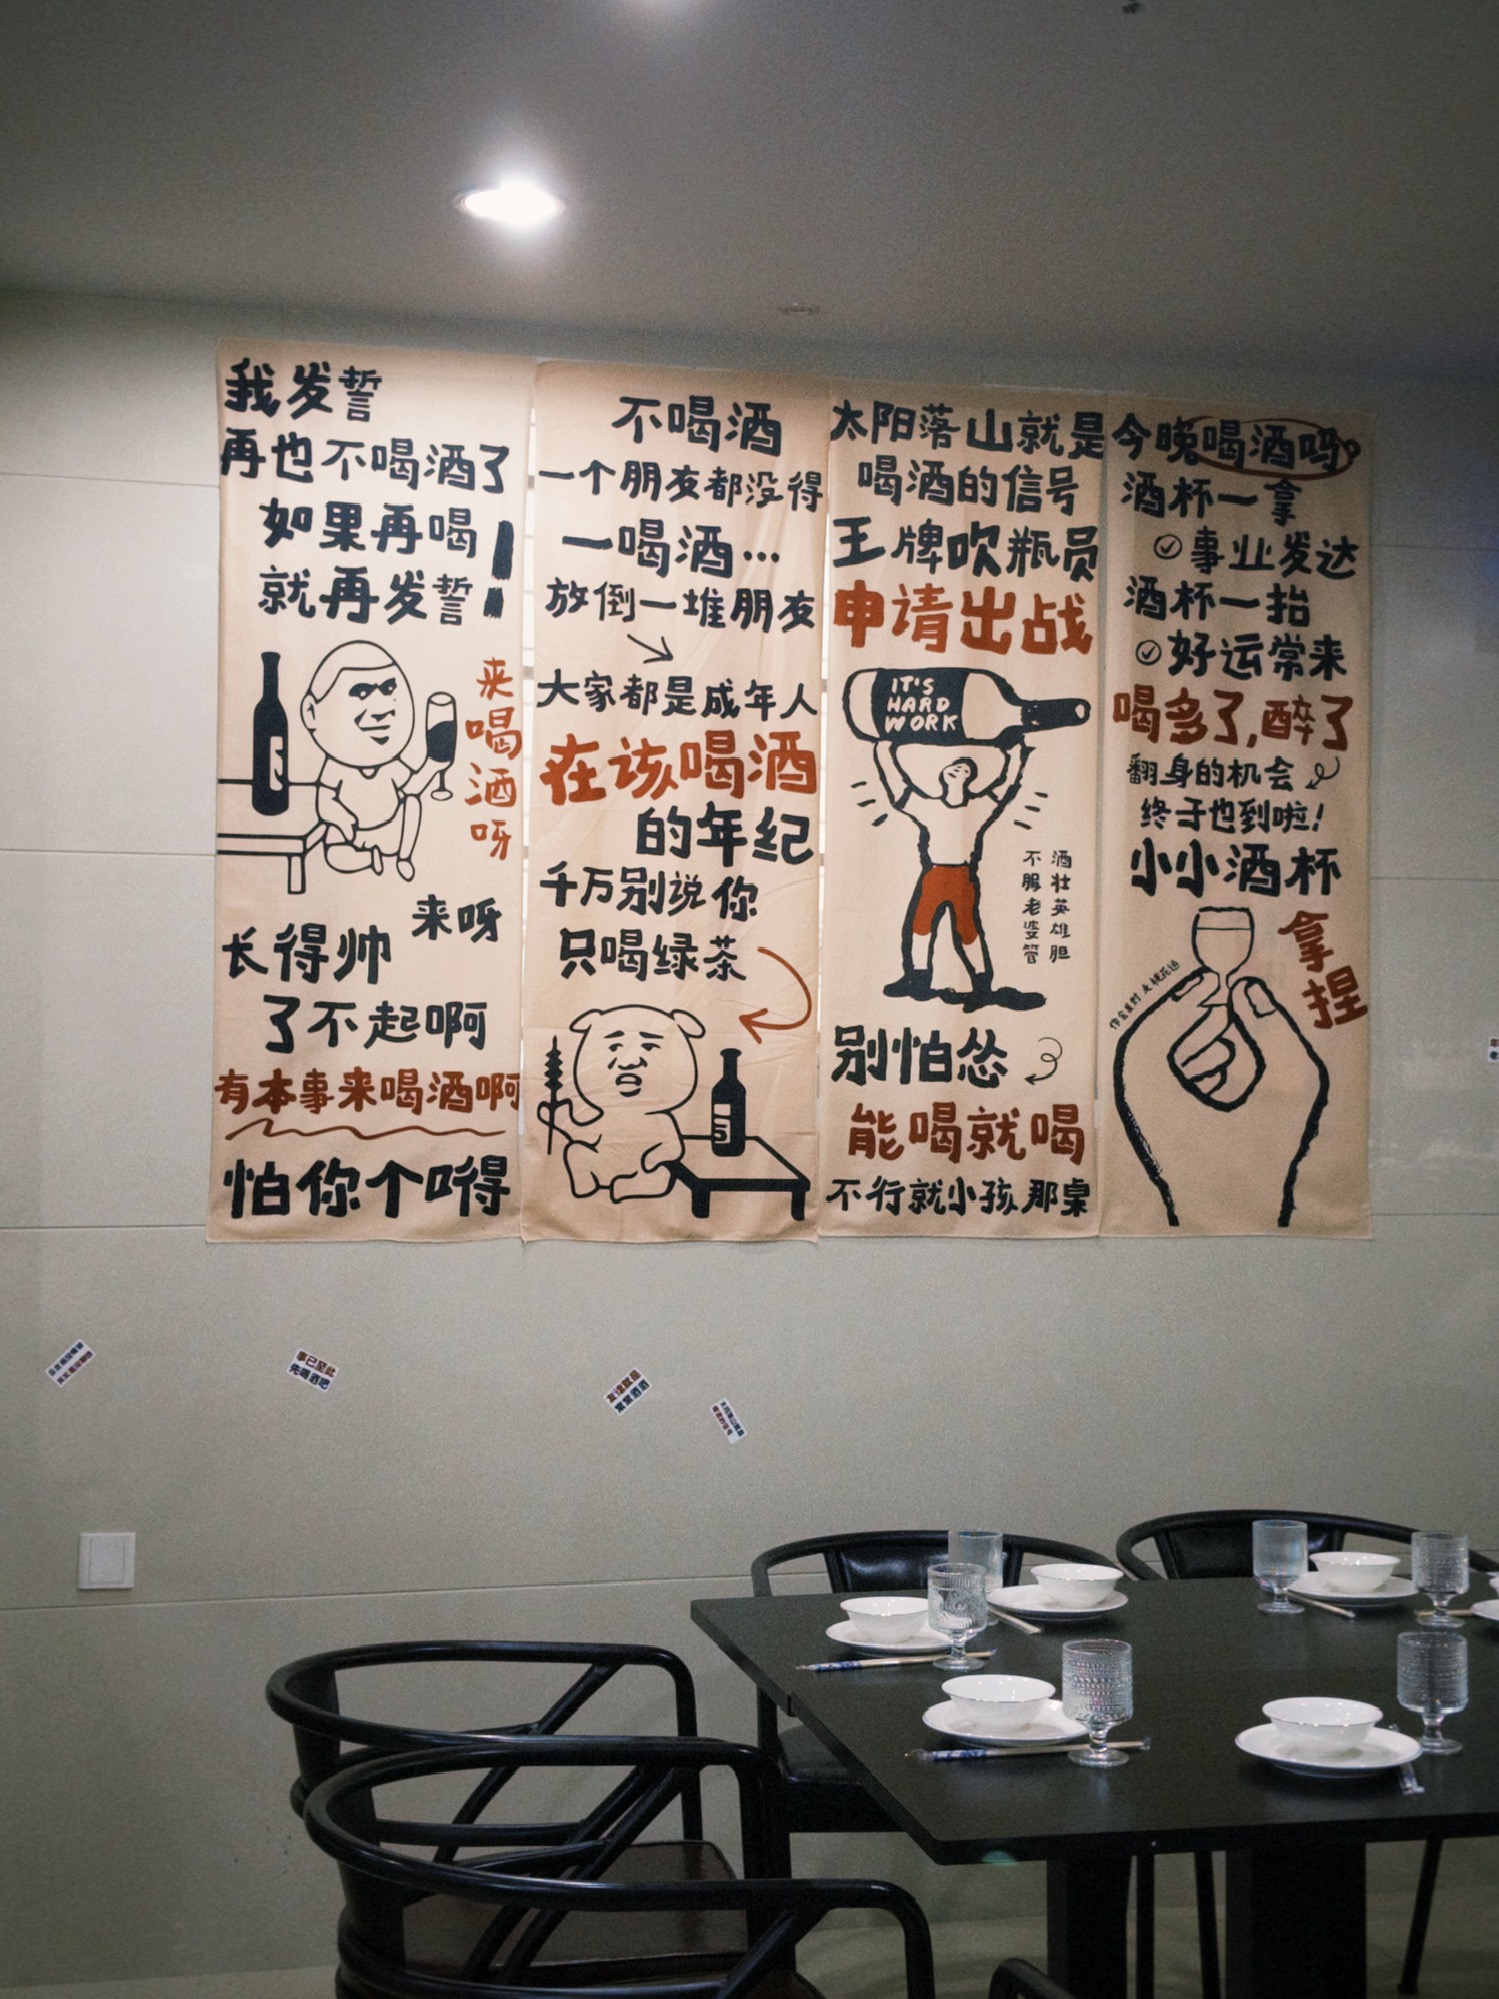 我发誓
再也不喝酒了
如果再喝
就再发誓!
来喝酒呀
来呀
长得帅
了不起啊
有本事来喝酒啊
怕你个嘚
不喝酒
一个朋友都没得
一喝酒…
放倒一堆朋友
大家都是成年人
在该喝酒
的年纪
千万别说你
只喝绿茶
太阳落山就是
喝酒的信号
王牌吹瓶员
申请出战
IT'S
HARD
WORK
酒壮英雄胆
不服老婆管
别怕怂
能喝就喝
不行就小孩那桌
今晚喝酒吗?
酒杯一拿
事业发达
酒杯一抬
好运常来
喝多了,醉了
翻身的机会
终于也到啦!
小小酒杯
拿捏
事已至此
先喝酒吧
友谊就是
常常酒酒
太阳落山就是
喝酒的信号